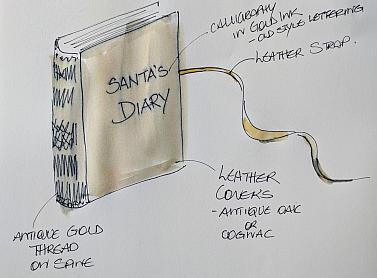 CALLIGRAPHY
IN GOLD INK
- OLD STYLE LETTERING
LEATHER STRAP.
SANTA'S
DIARY
LEATHER
COVERS
- ANTIQUE OAK
OR
COGNAC
ANTIQUE GOLD
THREAD
ON SPINE